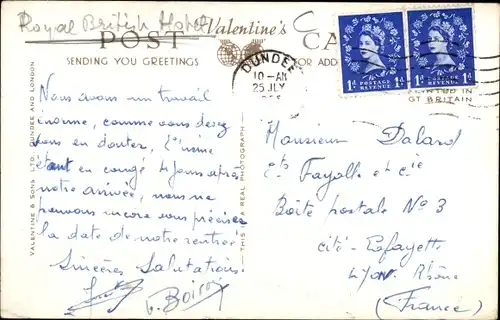 Royal British Hotel
Valentine's
POST CA
SENDING YOU GREETINGS
FOR ADD
DUNDEE
10 - AM
25 JLY
1D POSTAGE REVENUE 1D
1D POSTAGE REVENUE 1D
PRINTED IN
GT BRITAIN
VALENTINE & SONS LTD. DUNDEE AND LONDON
THIS IS A REAL PHOTOGRAPH
Nous avons un travail
énorme, comme vous devez
vous en douter,
étant en congé 4 jours après
notre arrivée, nous ne
pouvons encore vous préciser
la date de notre rentrée
Sincères Salutations.
Boiron
Monsieur
Ets Fayolle et Cie
Boîte postale No 3
cité Lafayette
Lyon. Rhône
(France)